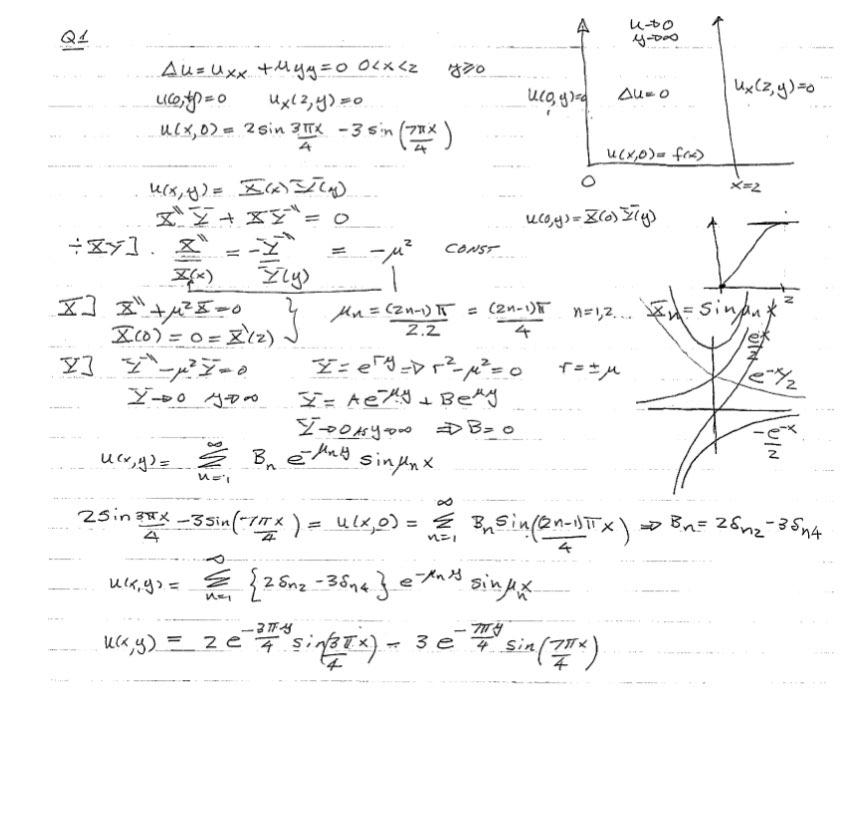 Q1
Δu = u_xx + u_yy = 0 0<x<2 y≥0
u(0,y)=0 u_x(2,y)=0
u(x,0) = 2 sin 3πx/4 - 3 sin (7πx/4)
u→0
y→∞
u(0,y)=0 Δu=0 u_x(2,y)=0
u(x,0)= f(x)
0 x=2
u(x,y) = X(x) Y(y)
X'' Y + X Y'' = 0 u(0,y)=X(0) Y(y)
÷XY]. X''/X(x) = -Y''/Y(y) = -μ² CONST
X] X'' + μ²X = 0
X(0) = 0 = X'(2) } μn = (2n-1)π/2.2 = (2n-1)π/4 n=1,2... Xn = sin μn x
2
Y] Y'' - μ²Y = 0 Y = e^{ry} ⇒ r² - μ² = 0 r = ±μ
Y→0 y→∞ Y = Ae^{-μy} + Be^{μy}
Y→0 As y→∞ ⇒ B = 0
e^x/2
e^{-x}/2
-e^{-x}/2
u(x,y) = ∞Σn=1 Bn e^{-μn y} sin μn x
2 sin 3πx/4 - 3 sin(-7πx/4) = u(x,0) = ∞Σn=1 Bn sin((2n-1)πx/4) ⇒ Bn = 2δn2 - 3δn4
u(x,y) = ∞Σn=1 {2δn2 - 3δn4} e^{-μn y} sin μn x
u(x,y) = 2 e^{-3πy/4} sin(3πx/4) - 3 e^{-7πy/4} sin(7πx/4)